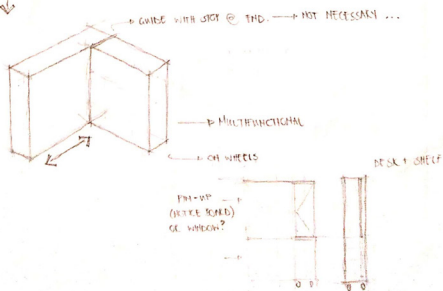 GUIDE WITH STOP @ END. → NOT NECESSARY ...
MULTIFUNCTIONAL
ON WHEELS
DESK + SHELF
PIN-UP
(NOTICE BOARD)
OR WINDOW?